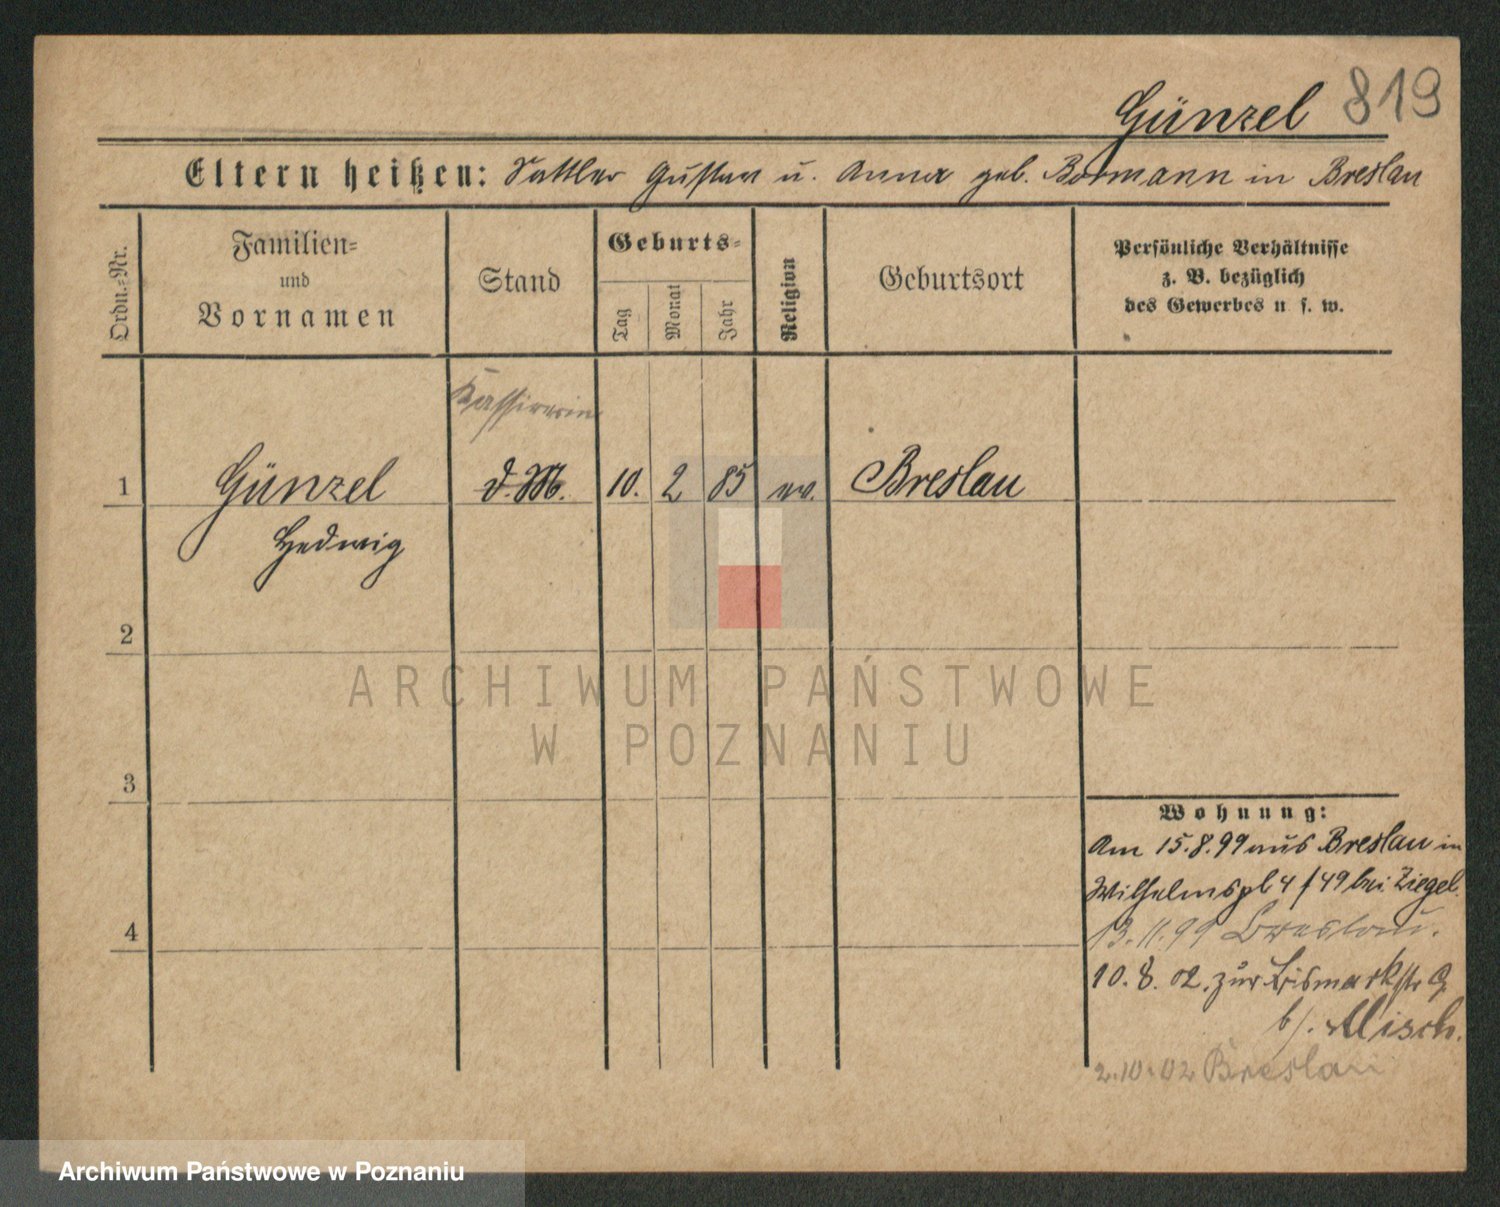 Günzel 819
Eltern heißen: Sattler Gustav u. Anna geb. Bormann in Breslau
Ordn.-Nr.
Familien-
und
Vornamen
Stand
Geburts-
Tag
Monat
Jahr
Religion
Geburtsort
Persönliche Verhältnisse
z. B. bezüglich
des Gewerbes u s. w.
Kassirerin
1 Günzel d. M. 10. 2 85 ev. Breslau
Hedwig
2
3
4
Wohnung:
Am 15.8.99 aus Breslau in
Wilhelmspl 4/49 bei Ziegel.
13.11.99 Breslau.
10.8.02. zur Bismarkstr 9
b/. Misch.
2.10.02 Breslau
ARCHIWUM PAŃSTWOWE
W POZNANIU
Archiwum Państwowe w Poznaniu